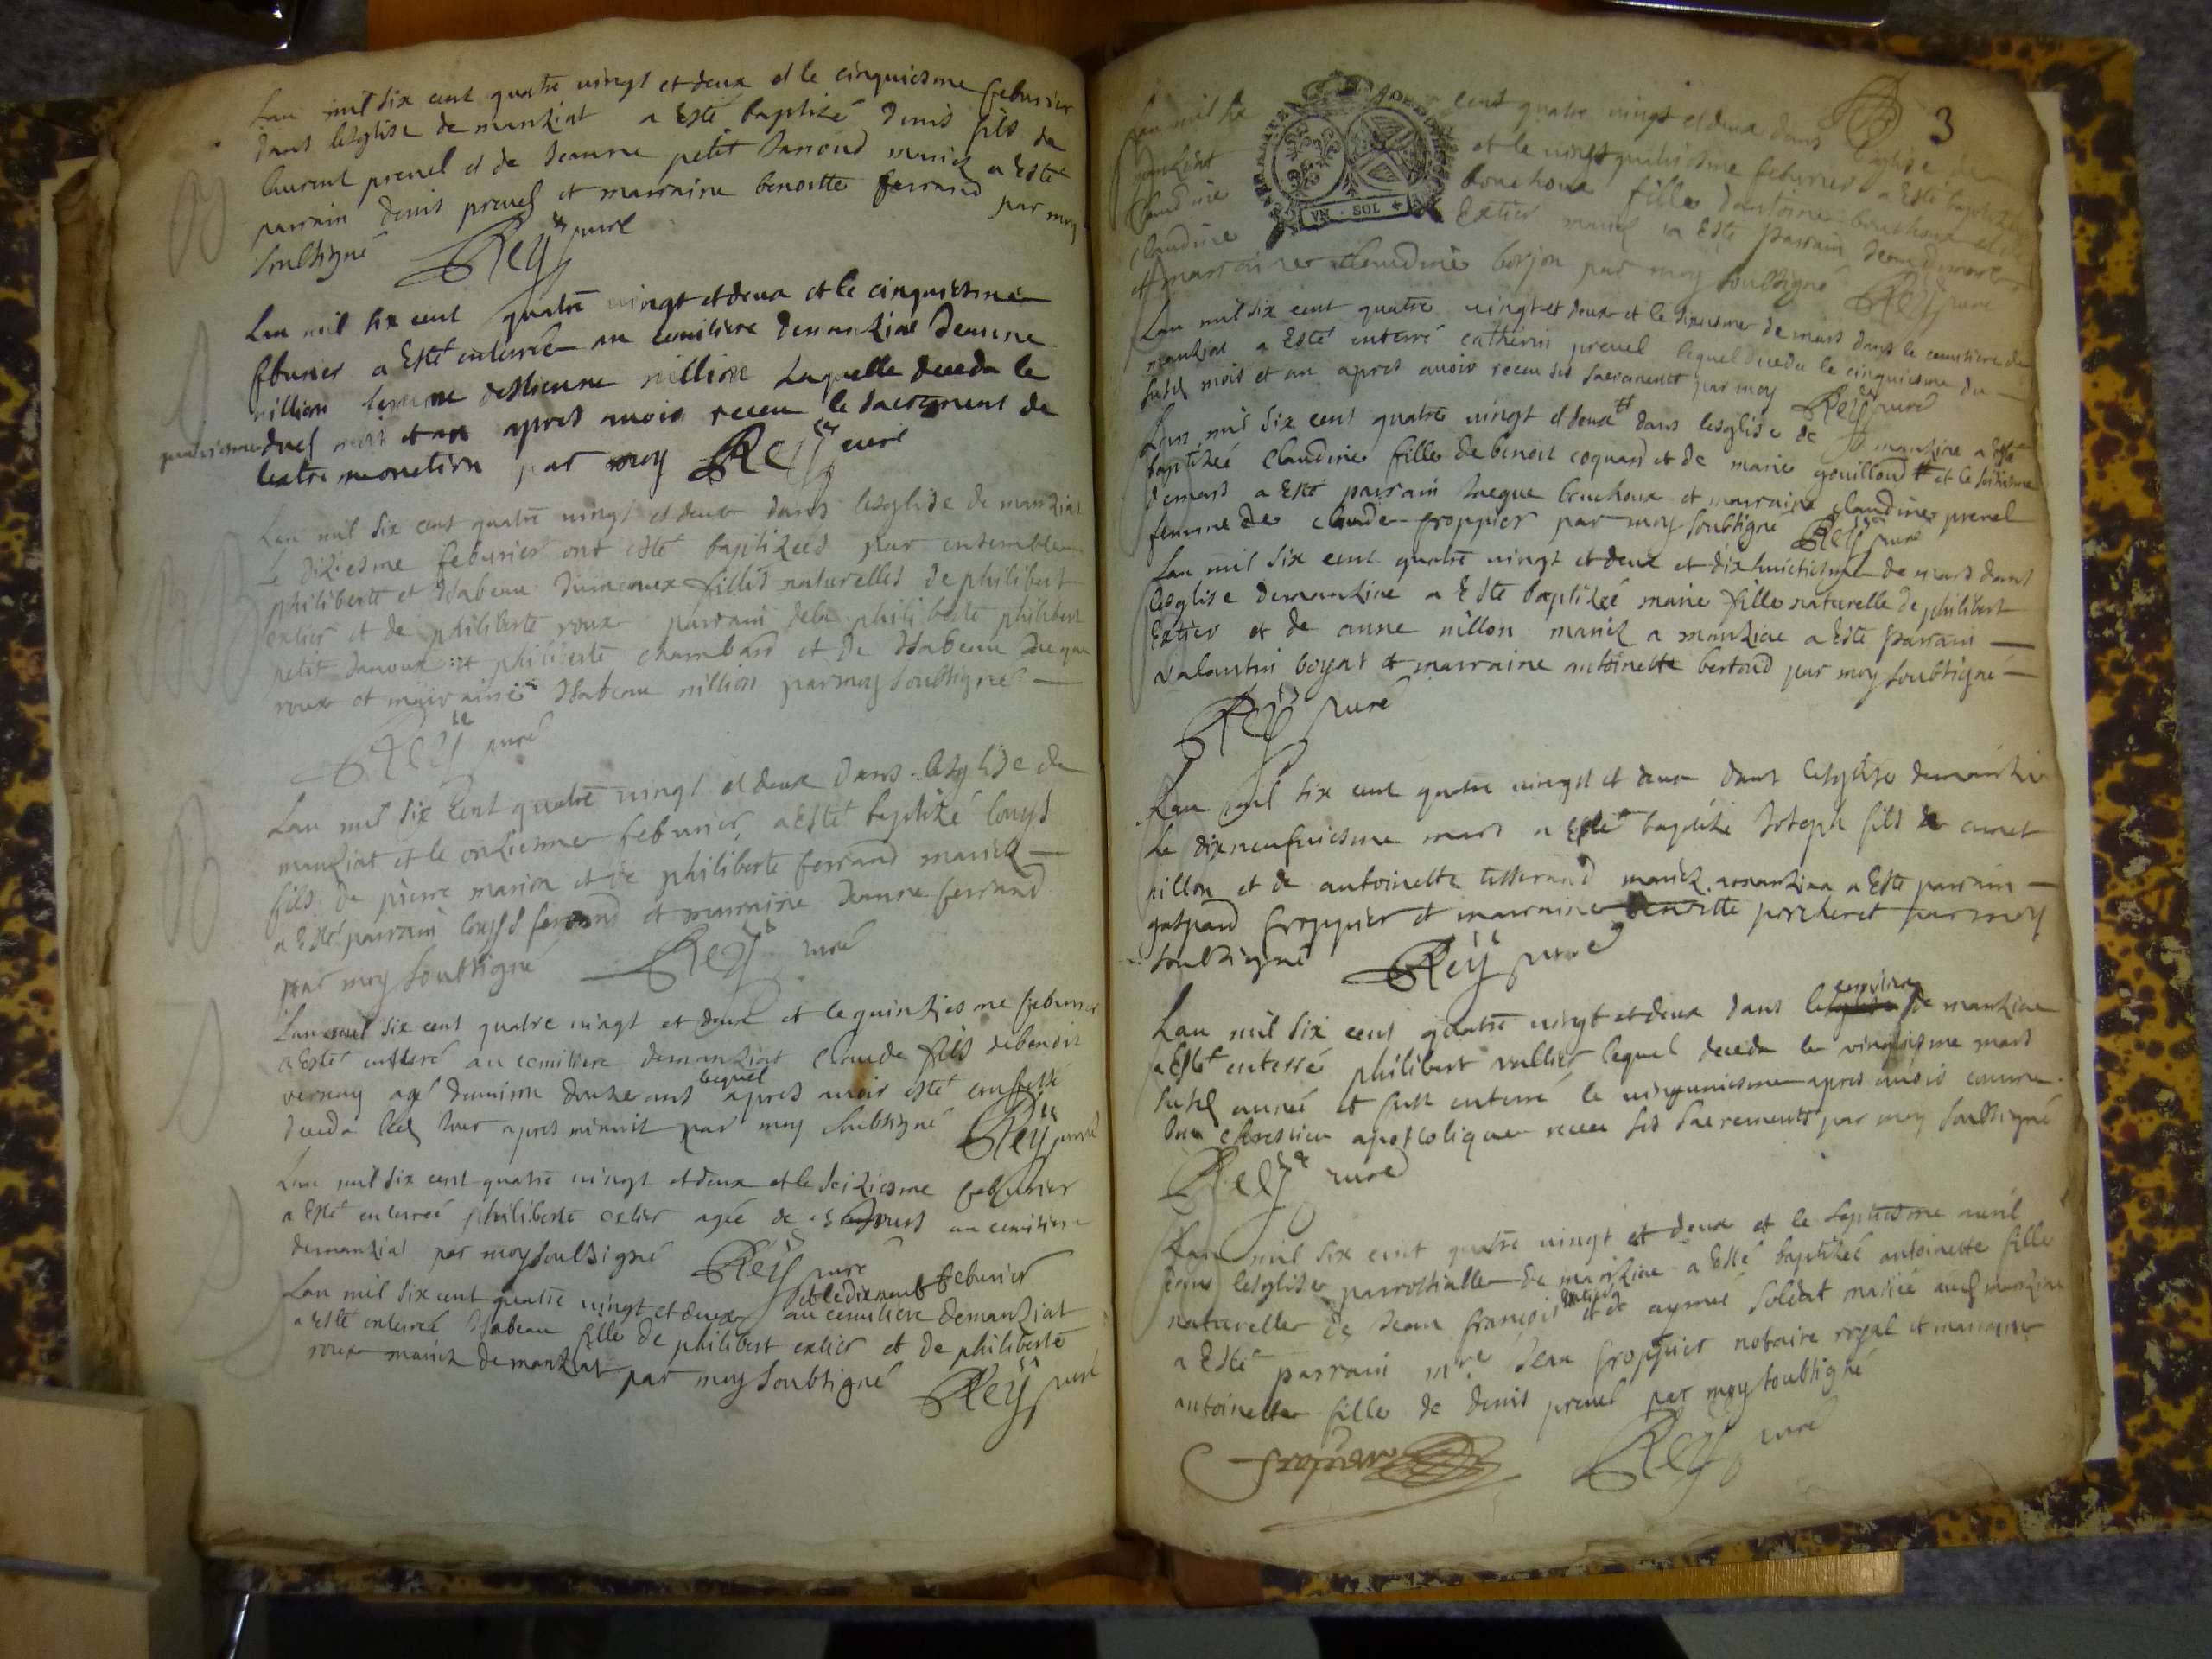 Lan mil six cent quatre vingt et deux et le cinquiesme feburier
dans lesglise de manziat a Esté baptizé denis fils de
laurent prevel et de Jeanne petit Janroud mariez a Esté
parrain denis prevel et marraine benoitte ferrand par moy
soubsigné Reÿ curé
Lan mil six cent quatre vingt et deux et le cinquiesme
feburier a Esté enterrée au cemitiere demanziat Jeanne
nillion femme destienne nillion Laquelle deceda le
dud mois et an apres avoir receu le sacrement de
lextre monction par moy Reÿ curé
Lan mil six cent quatre vingt et deux dans lesglise de manziat
Le diziesme feburier ont esté baptizeed par ensemble
philiberte et Isabeau Jumeaux filles naturelles de philibert
extier et de philiberte roux parrain dela philiberte philibert
petit Janroud et philiberte chambard et de Isabeau Jacque
roux et marraine Isabeau nillion parmoy soubsigné
Reÿ curé
Lan mil six Cent quatre vingt et deux dans lesglise de
manziat et le onziesme feburier a Esté baptizé louys
fils de pierre marion et de philiberte ferrand mariez
a Esté parrain louys ferrand et marraine Jeanne ferrand
par moy soubsigné Reÿ curé
Lan mil six cent quatre vingt et deux et le quinziesme feburier
a Esté enterré au cemitiere demanziat Claude fils debenoit
vernay agé denviron douze ans lequel apres avoir esté confessé
deceda led Jour apres minuit par moy soubsigné Reÿ curé
Lan mil six cent quatre vingt et deux et le seiziesme feburier
a Esté enterreé philiberte extier agée de 5 Jours au cemitiere
demanziat par moy soubsigné Reÿ curé
Lan mil six cent quatre vingt et deux et le dixneuf feburier
a Esté enterreé Isabeau fille de philibert extier et de philiberte au cemitiere demanziat
roux mariez de manziat par moy soubsigné Reÿ curé
3
Lan mil six cent quatre vingt et deux dans lesglise
manziat et le vingt quatriesme feburier a Esté baptizée
Claudine bouchoux fille dantoine bouchoux et de
claudine Extier mariez a Esté parrain
et marraine claudine borjon par moy soubsigné Reÿ curé
VN · SOL
Lan mil six cent quatre vingt et deux et le sixiesme de mars dans le cemitiere de
manziat a Esté enterré catherin prevel lequel deceda le cinquiesme du
susd mois et an apres avoir receu ses sacrements par moy Reÿ curé
Lan mil six cent quatre vingt et deux # dans lesglise de manziat a Esté
baptizeé Claudine fille de benoit coquard et de marie gouilloud # et le
demars a Esté parrain Jacque bouchoux et marraine claudine prevel
femme de claude froppier par moy soubsigné Reÿ curé
Lan mil six cent quatre vingt et deux et dixhuictiesme de mars dans
lesglise demanziat a Esté baptizeé marie fille naturelle de philibert
Extier et de anne nillon mariez a manziat a Esté parrain
valantin boyat et marraine antoinette bertoud par moy soubsigné
Reÿ curé
Lan mil six cent quatre vingt et deux dans lesglise demanziat
Le dixneufviesme mars a Esté baptizé Joseph fils de
nillon et de antoinette tisserand mariez amanziat a Esté parrain
gaspard froppier et marraine benoitte porcheret par moy
soubsigné Reÿ curé
Lan mil six cent quatre vingt et deux dans le cemitiere de manziat
a Esté enterré philibert vullier lequel deceda le vingtiesme mars
susd année et fust enterré le vingtuniesme apres avoir comme
bon chrestien apostolique receu ses sacrements par moy soubsigné
Reÿ curé
Lan mil six cent quatre vingt et deux et le septiesme avril
dans lesglise parrossialle de manziat a Esté baptizeé antoinette fille
naturelle de Jean françois et de aymeé soldat mariée
a Esté parrain mre Jean froppier notaire royal et marraine
antoinette fille de denis prevel par moy soubsigné
froppier Reÿ curé